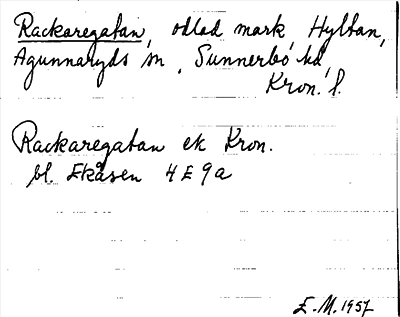 Rackaregatan, odlad mark Hyltan,
Agunnaryds sn, Sunnerbo hd,
Kron. l.
Rackaregatan ek Kron.
bl. Ekåsen 4 E 9a
E.M. 1957